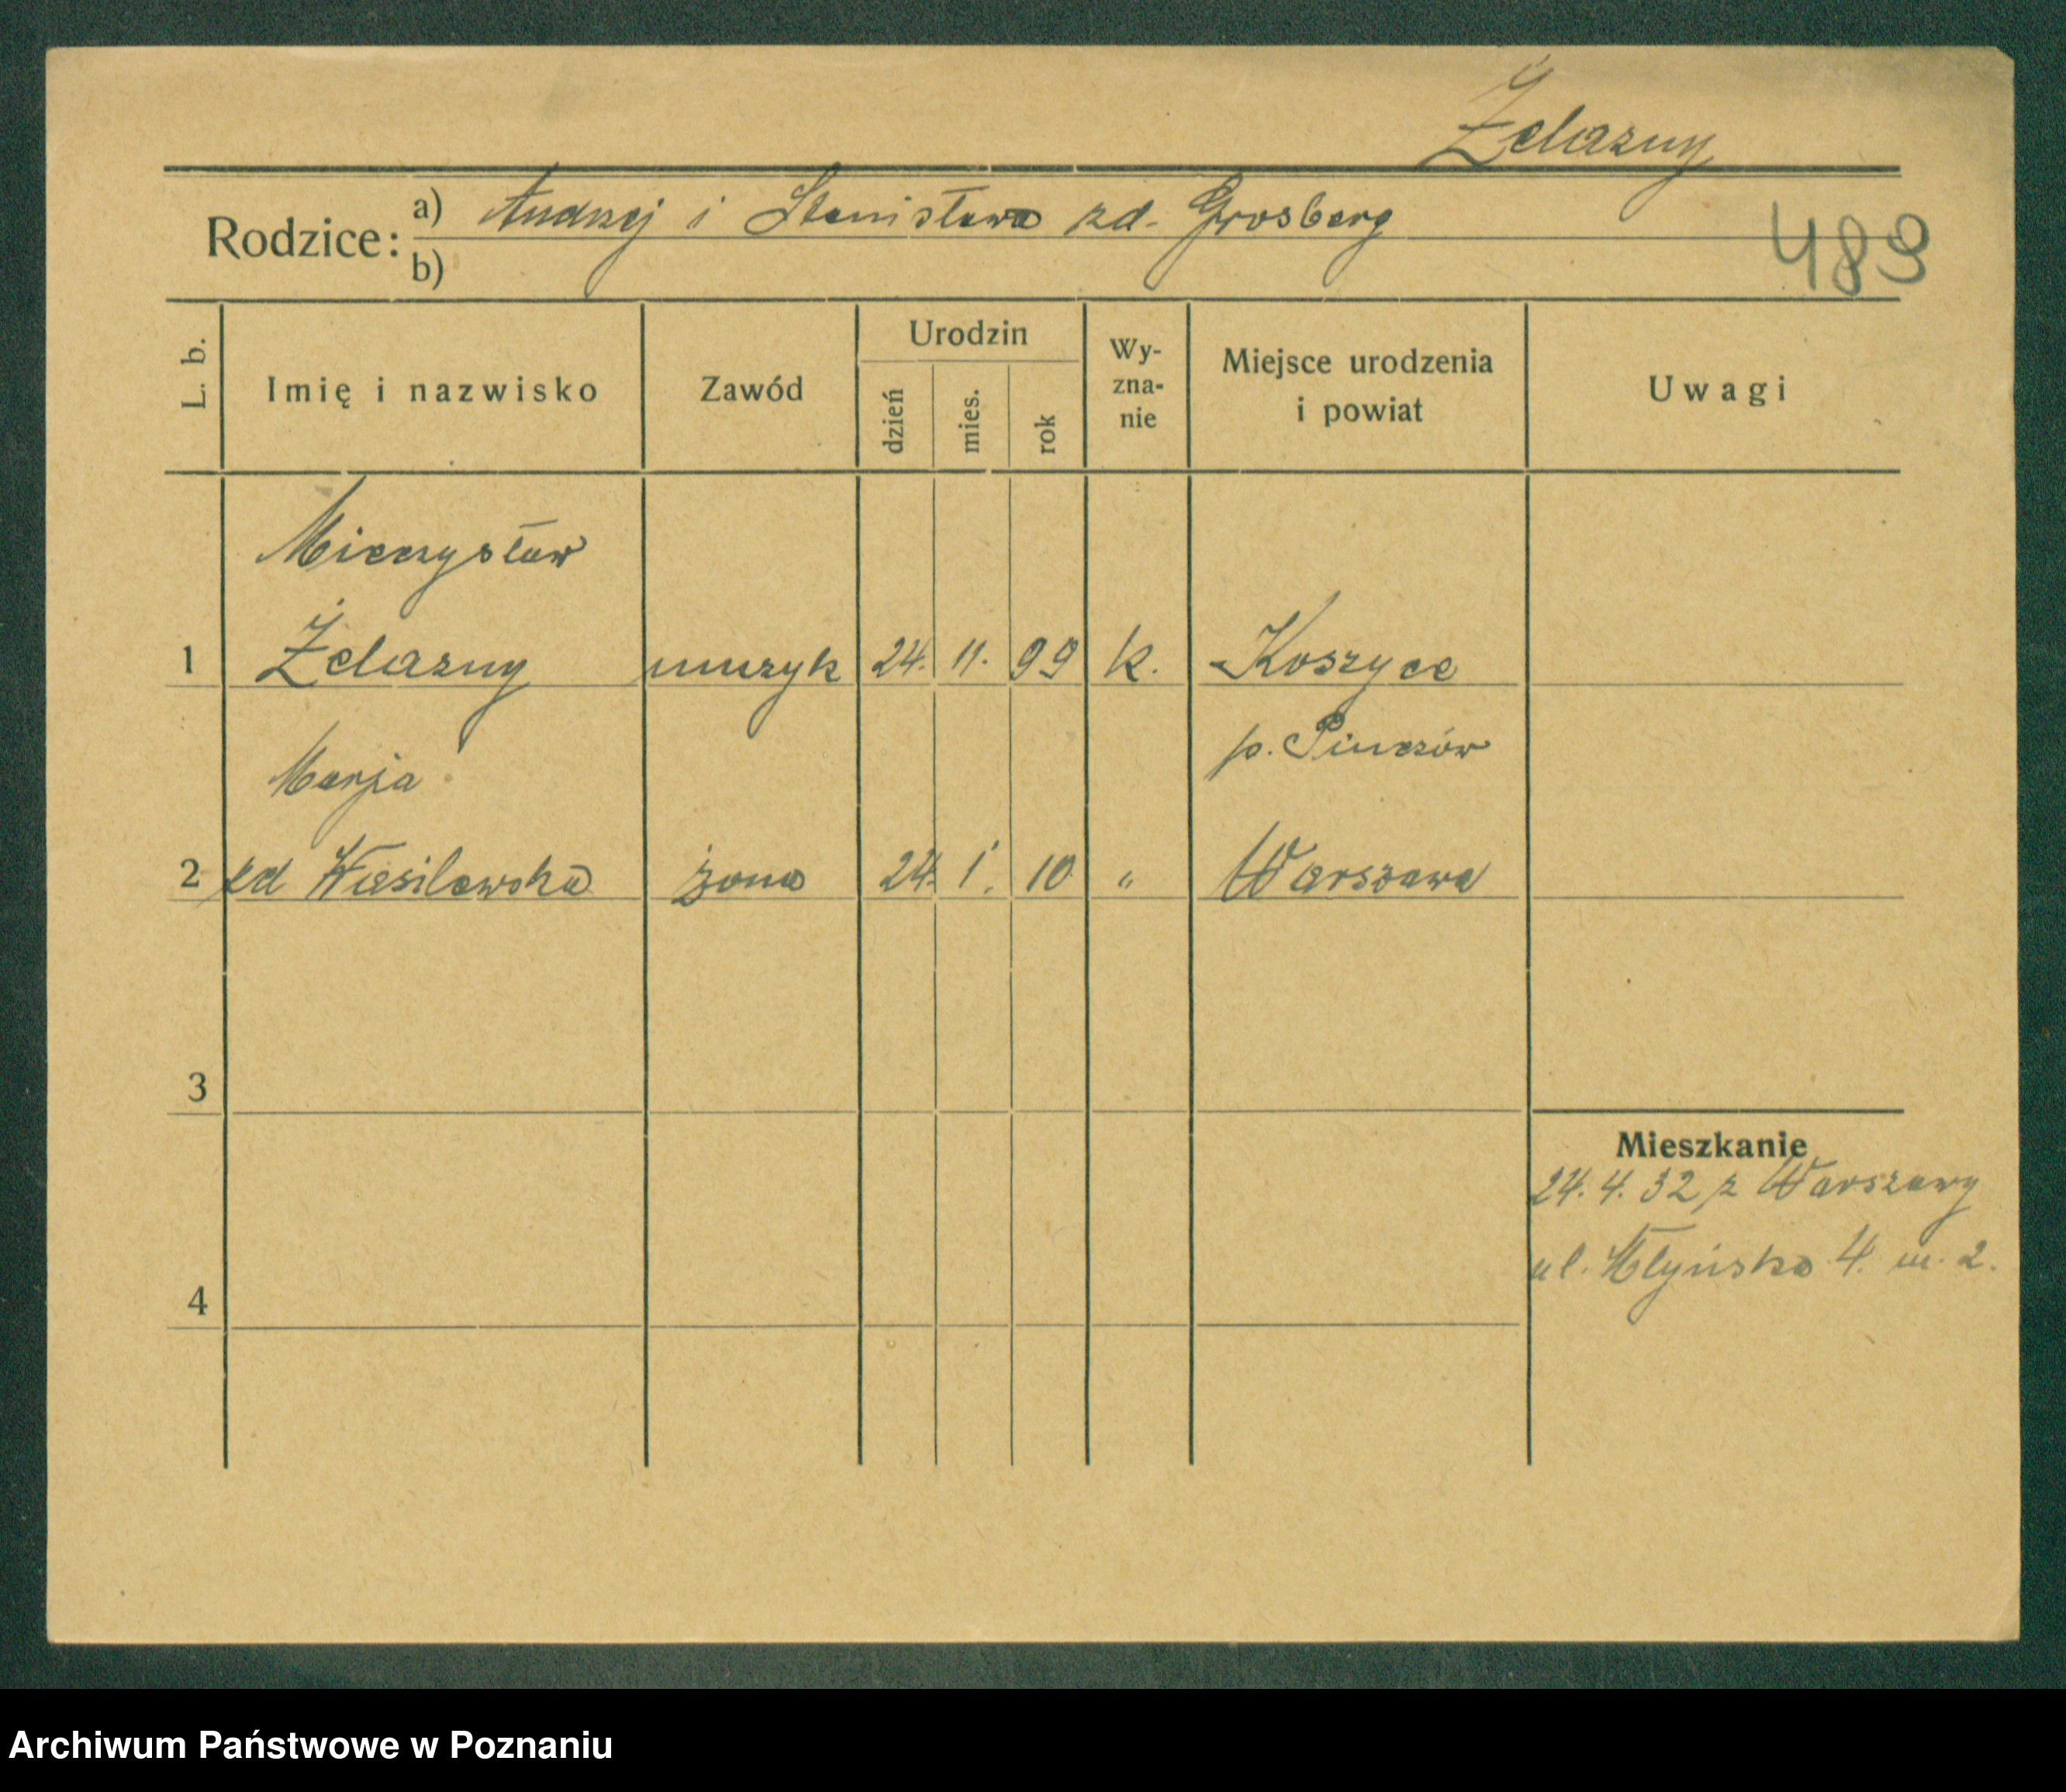 Żelazny
Rodzice: a) Andrzej i Stanisława zd. Grosberg
b)
489
L. b.
Imię i nazwisko
Zawód
Urodzin
dzień
mies.
rok
Wy-
zna-
nie
Miejsce urodzenia
i powiat
Uwagi
Mieczysław
1 Żelazny muzyk 24. 11. 99 k. Koszyce
p. Pinczów
Marja
2 zd Wasilewska żona 24. 1. 10 " Warszawa
3
Mieszkanie
24. 4. 32 z Warszawy
ul. Młyńska 4. m. 2.
4
Archiwum Państwowe w Poznaniu